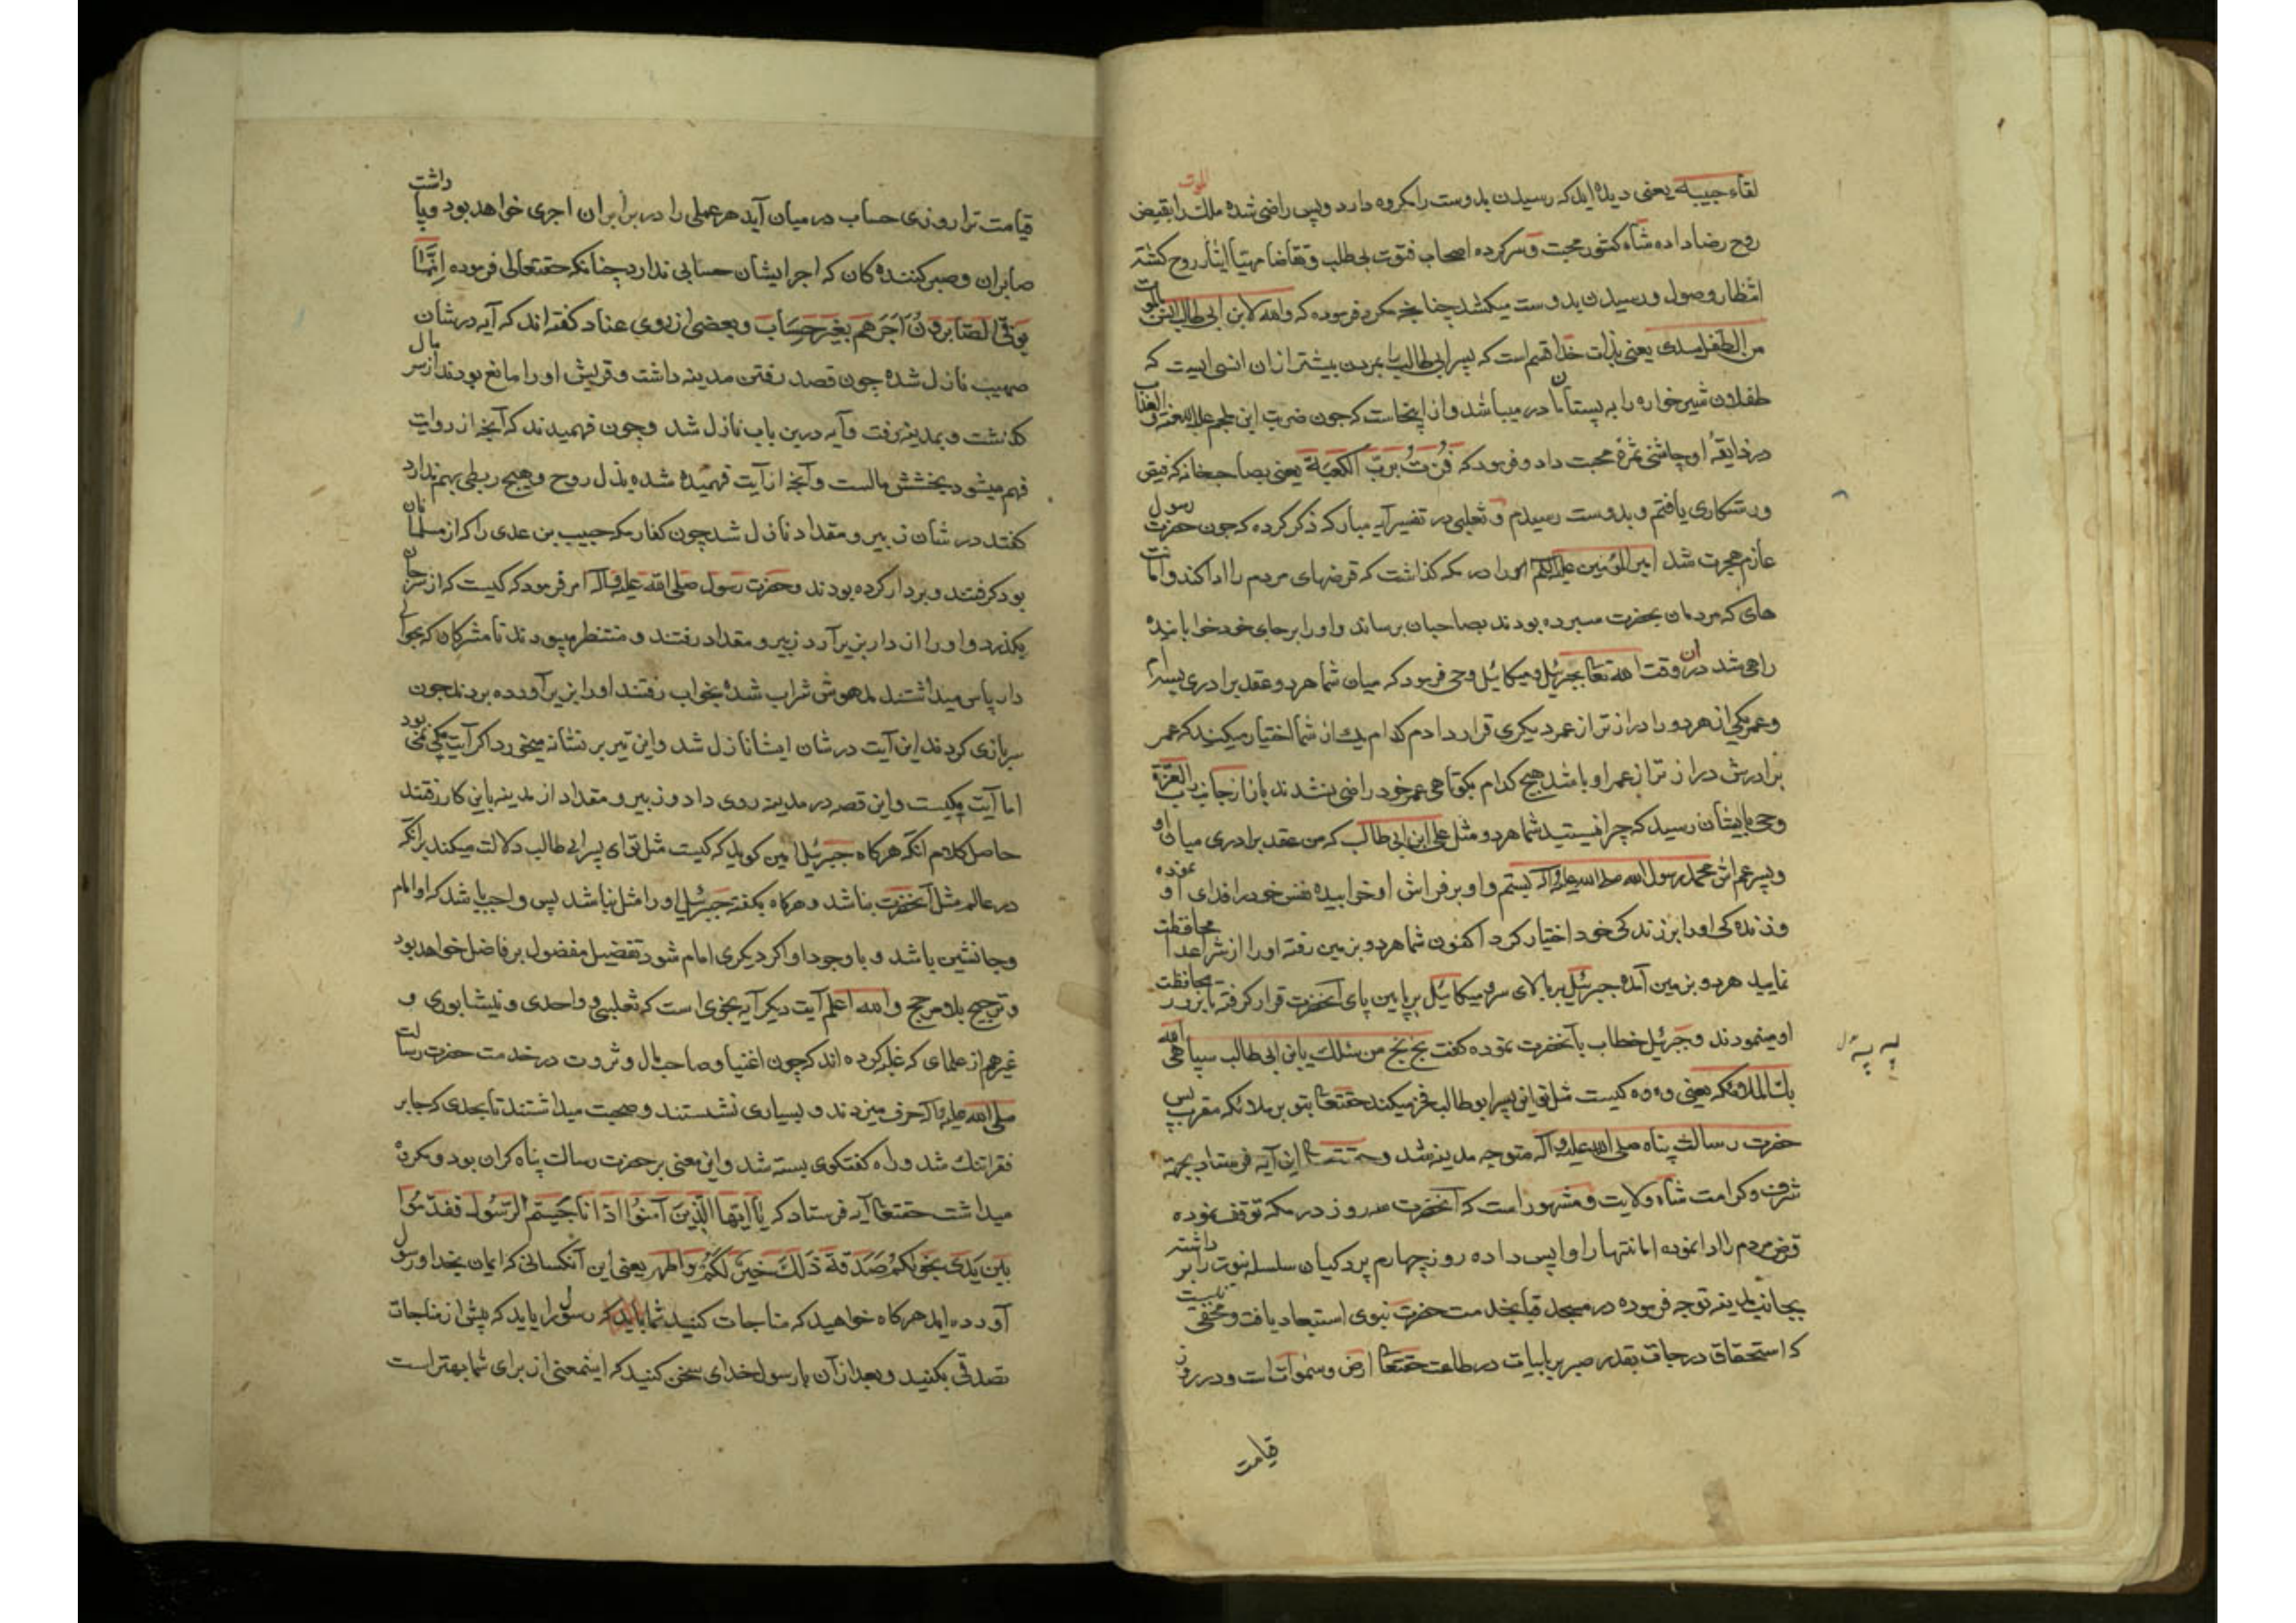 لقاء حبیبه یعنی دیده اید که رسیدن بدوست را مکروه دارد و پس راضی شده ملک الموت را بقبض
روح رضا داده شاه کشور محبت و سرکرده اصحاب فتوت بی طلب و تقاضا مهیا ایثار روح کشته
انتظار وصول و رسیدن بدوست میکشد چنانچه مکرر فرموده که والله لابن ابی طالب انس بالموت
من الطفل بثدی یعنی بذات خدا قسم است که پسر ابی طالب را بمردن بیشتر از ان انس است که
طفلان شیرخواره را به پستان مادر میباشد و از اینجاست که چون ضربت ابن ملجم علیه اللعنة و العذاب
در ذایقه او چاشنی ثمرهٔ محبت داد و فرمود که فُزتُ بربّ الکعبة یعنی بصاحب خانه که فیض
ورستکاری یافتم و بدوست رسیدم و ثعلبی در تفسیر آیه مبارکه ذکر کرده که چون حضرت رسول
عازم هجرت شد امیر المؤمنین علیه السلام را در مکه کذاشت که قرضهای مردم را ادا کند و امانت
های که مردمان بحضرت سپرده بودند بصاحبان برساند و او را بر جای خود خوابانیده
راهی شد در ان وقت الله تعا بجبرئیل و میکائیل وحی فرمود که میان شما هر دو عقد برادری بستم
و عمر یکی از هر دو را درازتر از عمر دیکری قرار دادم کدام یک از شما اختیار میکنید که عمر
برادرش درازتر از عمر او باشد هیچ کدام بکوتاهی عمر خود راضی نشدند باز از جناب رب العزة
وحی بایشان رسید که چرا نیستید شما هر دو مثل علی ابن ابی طالب که من عقد برادری میان او
و پسر عم اش محمد رسول الله صلی الله علیه و آله بستم و او بر فراش او خوابیده نفس خود را فدای او نموده
و زنده کی او را بر زندکی خود اختیار کرد اکنون شما هر دو بزمین رفته او را از شر اعدا محافظت
نمایید هر دو بزمین آمده جبرئیل بر بالای سر و میکائیل بر پایین پای آنحضرت قرار کرفته تا بروز محافظت
او مینمودند و جبرئیل خطاب بآنحضرت نموده کفت بخ بخ من مثلک یابن ابی طالب یباهی الله
بک الملائکه یعنی وه وه کیست مثل تو این پسر ابو طالب فخر میکند حقتعا بتو بر ملائکه مقرب پس
حضرت رسالت پناه صلی الله علیه و آله متوجه مدینه شد و حقتعا این آیه فرستاد بجهة
شرف و کرامت شاه ولایت و مشهور است که آنحضرت سه روز در مکه توقف نموده
قرض مردم را ادا نموده امانتها را واپس داده روز چهارم پردکیان سلسله نبوت را بر داشته
بجانب مدینه توجه فرموده در مسجد قبا بخدمت حضرت نبوی استسعاد یافت و مخفی نیست
که استحقاق درجات بقدر صبر بر بلیات در طاعت حقتعا ارض و سموات است و در روز
قیامت
قیامت ترازوی حساب در میان آید هر عملی را در برابر ان اجری خواهد بود و یا داشت
صابران و صبر کننده کان که اجر ایشان حسابی ندارد چنانکه حقتعالی فرموده اِنَّمَا
یوفّی الصّابرونَ اَجرَهم بِغیرِ حِسَاب و بعضی از روی عناد کفته اند که آیه در شان
صهیب نازل شده چون قصد رفتن مدینه داشت و قریش او را مانع بودند از سر مال
کذشت و بمدینه رفت و آیه درین باب نازل شد و چون فهمیدند که آنچه از روایت
فهم میشود بخشش مالست و آنچه از آیت فهمیده شده بذل روح و هیچ ربطی بهم ندارد
کفتند در شان زبیر و مقداد نازل شد چون کفار مکه حبیب بن عدی را که از مسلمانان
بود کرفتند و بر دار کرده بودند و حضرت رسول صلی الله علیه و آله امر فرمود که کیست که از سر جان
بکذرد و او را از دار بزیر آرد زبیر و مقداد رفتند و منتظر میبودند تا مشرکان که بحوالی
دار پاس میداشتند مدهوش شراب شده بخواب رفتند او را بزیر آورده بردند چون
سربازی کردند این آیت در شان ایشان نازل شد و این تیر بر نشانه میخورد اگر آیت مکی نمی بود
اما آیت مکیست و این قصه در مدینه روی داد و زبیر و مقداد از مدینه باین کار رفتند
حاصل کلام انکه هرکاه جبرئیل امین کوید که کیست مثل تو ای پسر ابی طالب دلالت میکند بر انکه
در عالم مثل آنحضرت نباشد و هرکاه بکفته جبرئیل او را مثل نباشد پس واجب باشد که او امام
و جانشین باشد و با وجود او اکر دیکری امام شود تفضیل مفضول بر فاضل خواهد بود
و ترجیح بلا مرجح و الله اعلم آیت دیکر آیه نجوی است که ثعلبی و واحدی و نیشابوری و
غیرهم از علمای که غلبه کرده اند که چون اغنیا و صاحب مال و ثروت در خدمت حضرت رسالت
صلی الله علیه و آله حرف میزدند و بسیاری نشستند و صحبت میداشتند تا بحدی که جا بر
فقرا تنک شد و راه کفتکوی بسته شد و این معنی بر حضرت رسالت پناه کران بود و مکروه
میداشت حقتعا آیه فرستاد که یَا اَیّها الّذینَ آمَنُوا اذَا نَاجَیتُم الرّسُولَ فَقَدّمُوا
بَینَ یَدَی نَجوٰلکُم صَدَقَةً ذَلکَ خَیرٌ لَکُم وَ اَطهر یعنی این آنکسانی که ایمان بخدا و رسول
آورده اید هرکاه خواهید که مناجات کنید شما باید که رسول را باید که پیش از مناجات
تصدقی بکنید و بعد از آن با رسول خدای سخن کنید که اینمعنی از برای شما بهتر است